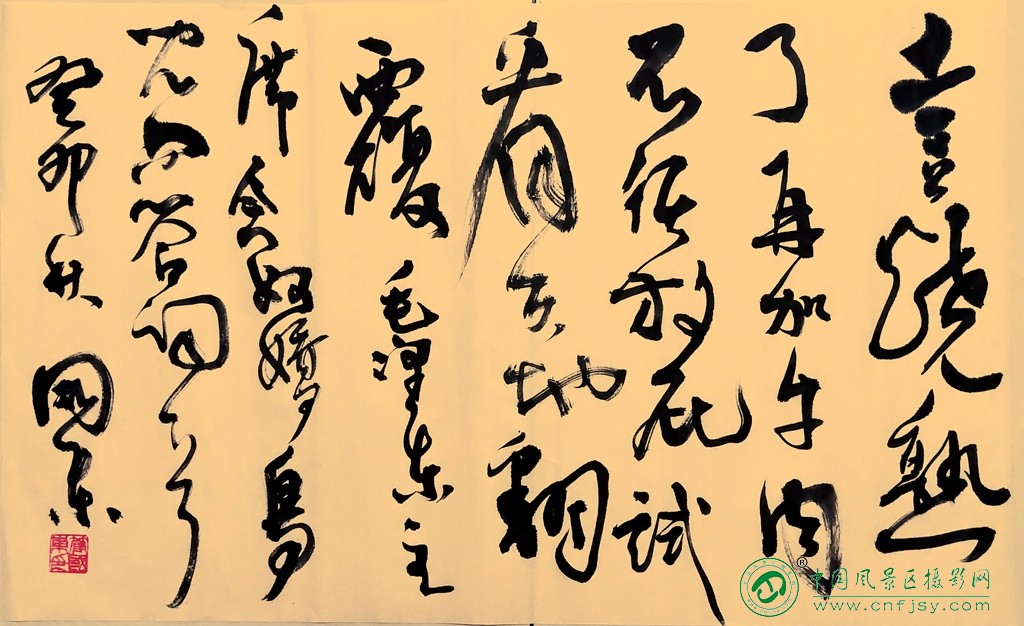 土豆烧熟
了再加牛肉
不须放屁试
看天地翻
覆 毛泽东主
席念奴娇 鸟
儿问答词一首
癸卯秋 國军
中国风景区摄影网
www.cnfjsy.com